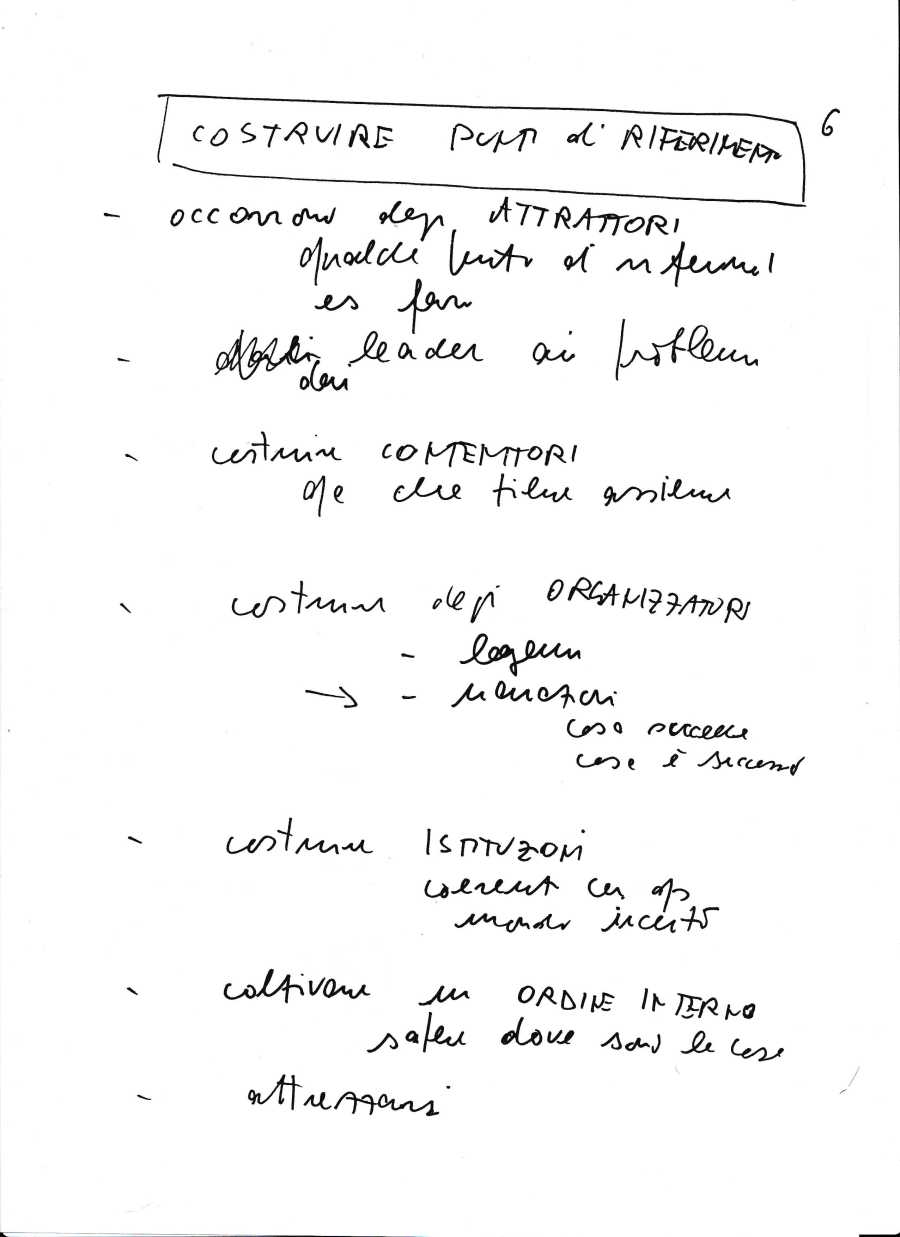 6
COSTRUIRE PUNTI di RIFERIMENTO
- occorrono degli ATTRATTORI
qualche punto di riferimento
es
- dei leader ai problemi
- costruire CONTENITORI
che tiene assieme
- costruire degli ORGANIZZATORI
- leggere
→ - narratori
cosa succede
cosa è successo
- costruire ISTITUZIONI
coerenti con
mondo incerto
- coltivare un ORDINE INTERNO
sapere dove sono le cose
- attrezzarsi